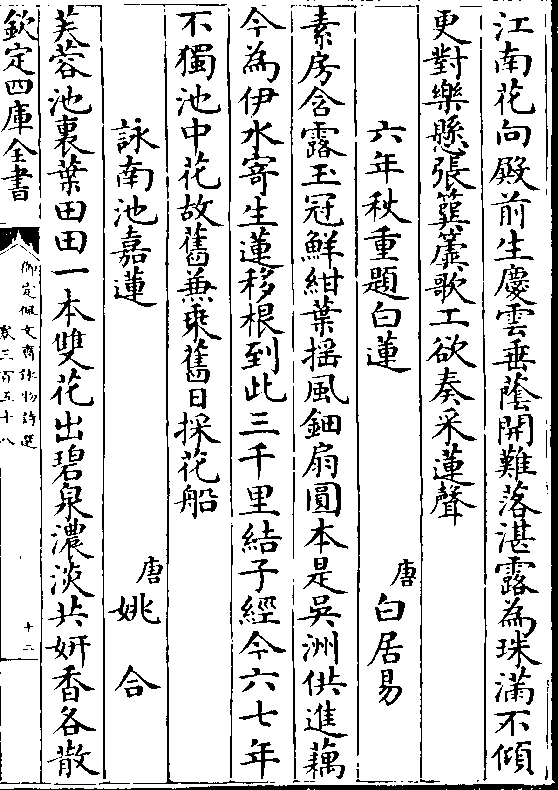 江南花向殿前生慶雲垂蔭開難落湛露為珠滿不傾
更對樂懸張簨簴歌工欲奏采蓮聲
六年秋重題白蓮 唐 白居易
素房含露玉冠鮮紺葉搖風鈿扇圓本是吳洲供進藕
今為伊水寄生蓮移根到此三千里結子經今六七年
不獨池中花故舊兼乘舊日採花船
詠南池嘉蓮 唐 姚合
芙蓉池裏葉田田一本雙花出碧泉濃淡共妍香各散
欽定四庫全書
御定佩文齋詠物詩選
卷三百五十八
十二